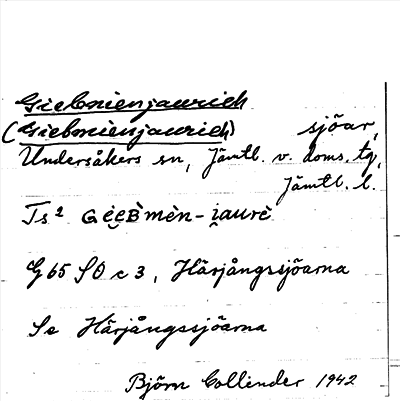 Giebnienjaurieh
(Giebmienjaurieh) sjöar,
Undersåkers sn, Jämtl. v. doms. tg,
Jämtl. l.
Ts²
G 65 SO c 3, Härjångssjöarna
Se Härjångssjöarna
Björn Collinder 1942